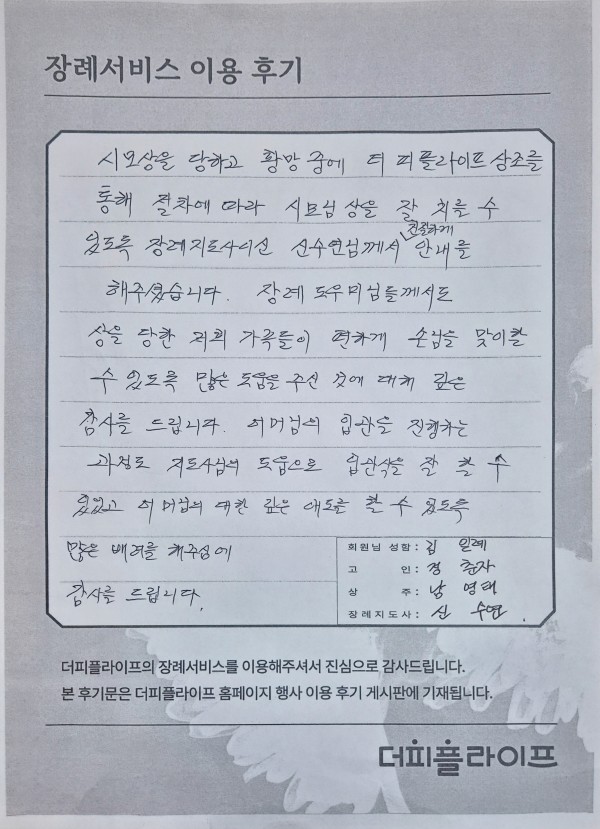 장례서비스 이용 후기
시모상을 당하고 황망 중에 더 피플라이프 상조를
통해 절차에 따라 시모님 상을 잘 치를 수
있도록 장례지도사이신 신수연님께서 친절하게 안내를
해주셨습니다. 장례 도우미님들께서도
상을 당한 저희 가족들이 편하게 손님을 맞이할
수 있도록 많은 도움을 주신 것에 대해 깊은
감사를 드립니다. 어머님의 입관을 진행하는
과정도 지도사님의 도움으로 입관식을 잘 할 수
있었고 어머님의 대한 깊은 애도를 할 수 있도록
많은 배려를 해주심에
감사를 드립니다.
회원님 성함 : 김 일례
고 인 : 정 춘자
상 주 : 남 영태
장례지도사 : 신 수연
더피플라이프의 장례서비스를 이용해주셔서 진심으로 감사드립니다.
본 후기문은 더피플라이프 홈페이지 행사 이용 후기 게시판에 기재됩니다.
더피플라이프